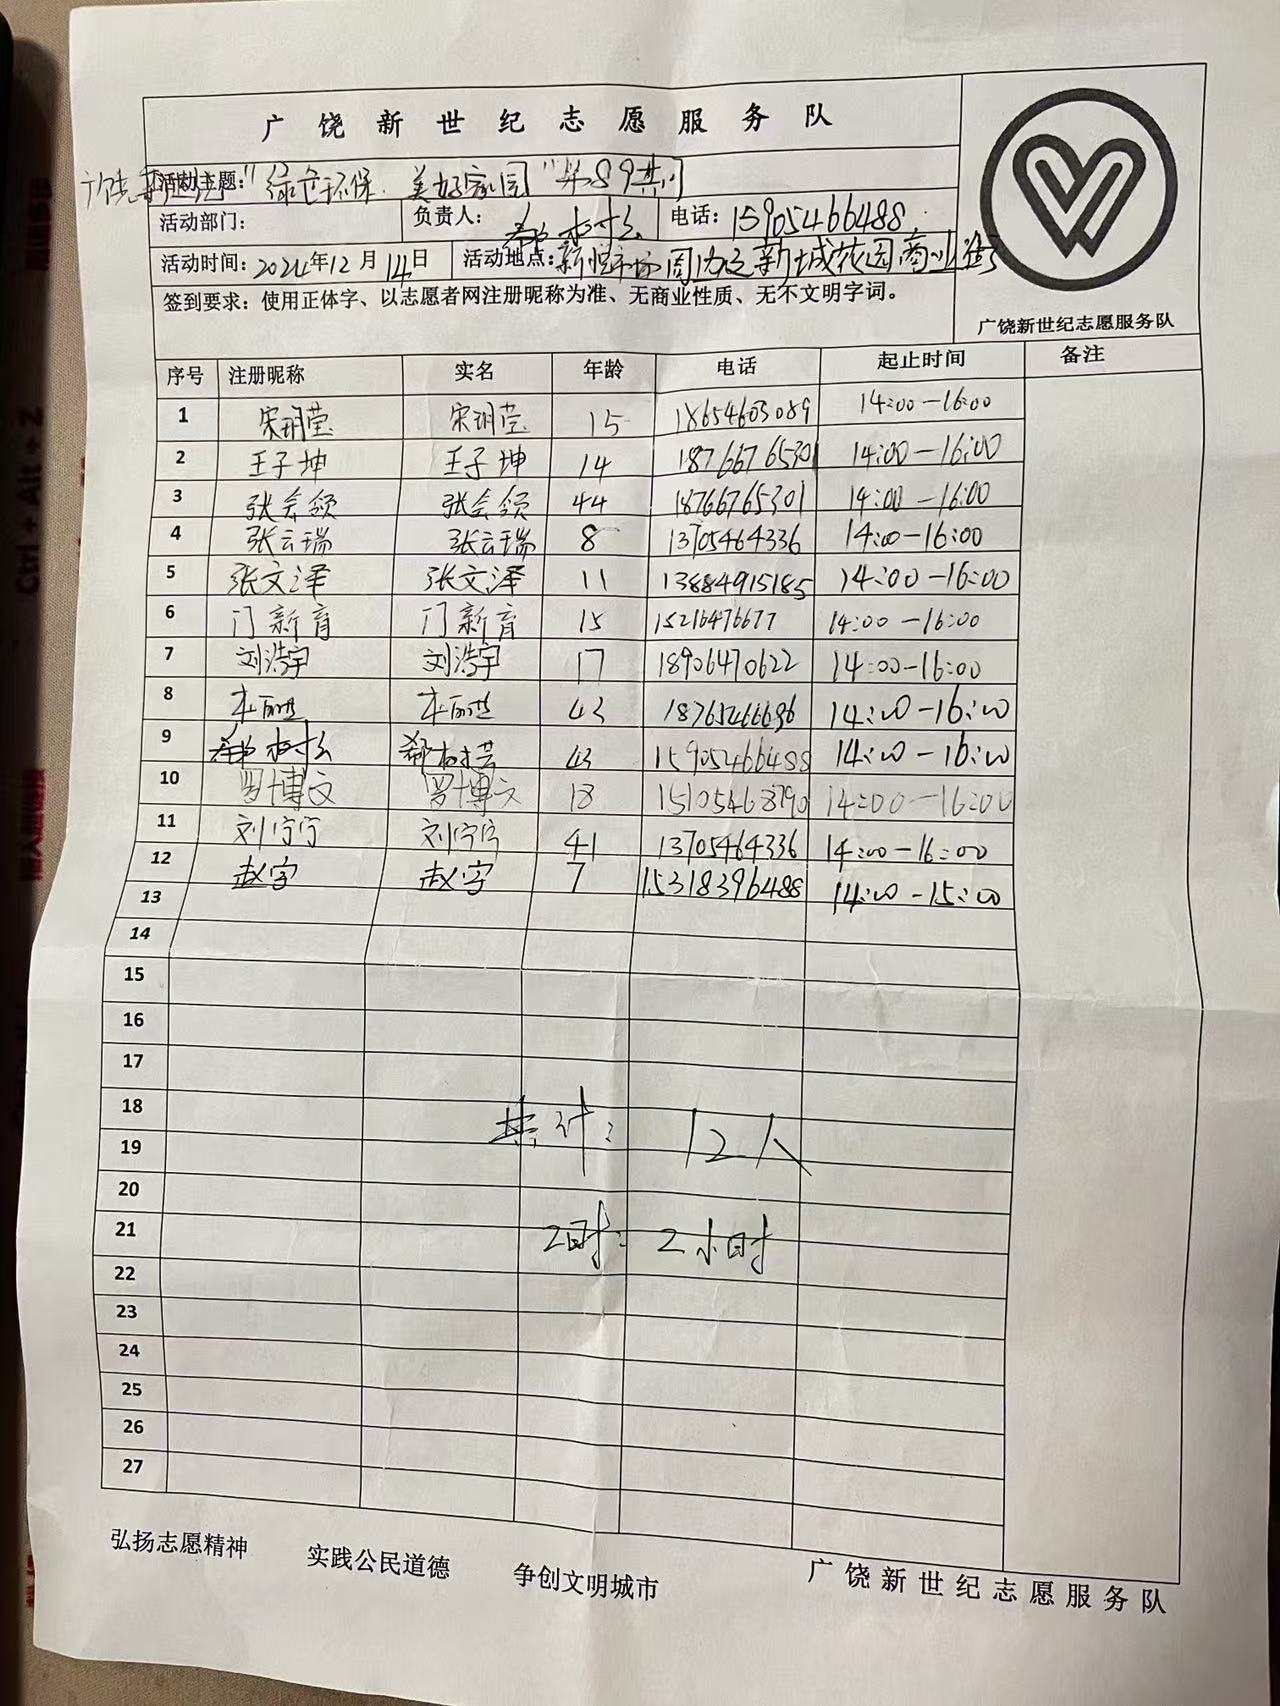 广饶新世纪志愿服务队
活动主题："绿色环保 美好家园"第89期
活动部门： 负责人： 电话：15905466488
活动时间：2024年12月14日 活动地点：新悦市场周边新城花园商业街
签到要求：使用正体字、以志愿者网注册昵称为准、无商业性质、无不文明字词。
广饶新世纪志愿服务队
序号 注册昵称 实名 年龄 电话 起止时间 备注
1 宋玥莹 宋玥莹 15 18654603089 14:00-16:00
2 王子坤 王子坤 14 18766765301 14:00-16:00
3 张会领 张会领 44 18766765301 14:00-16:00
4 张云瑞 张云瑞 8 13705464336 14:00-16:00
5 张文泽 张文泽 11 13884915185 14:00-16:00
6 门新育 门新育 15 15216476677 14:00-16:00
7 刘浩宇 刘浩宇 17 18906470622 14:00-16:00
8 43 14:00-16:00
9 43 15905466488 14:00-16:00
10 罗博文 罗博文 18 15105468790 14:00-16:00
11 刘宁宁 刘宁宁 41 13705464336 14:00-16:00
12 赵字 赵字 7 15318396488 14:00-15:00
13
14
15
16
17
18
19
20
21
22
23
24
25
26
27
共计：12人
工时：2小时
弘扬志愿精神 实践公民道德 争创文明城市 广饶新世纪志愿服务队